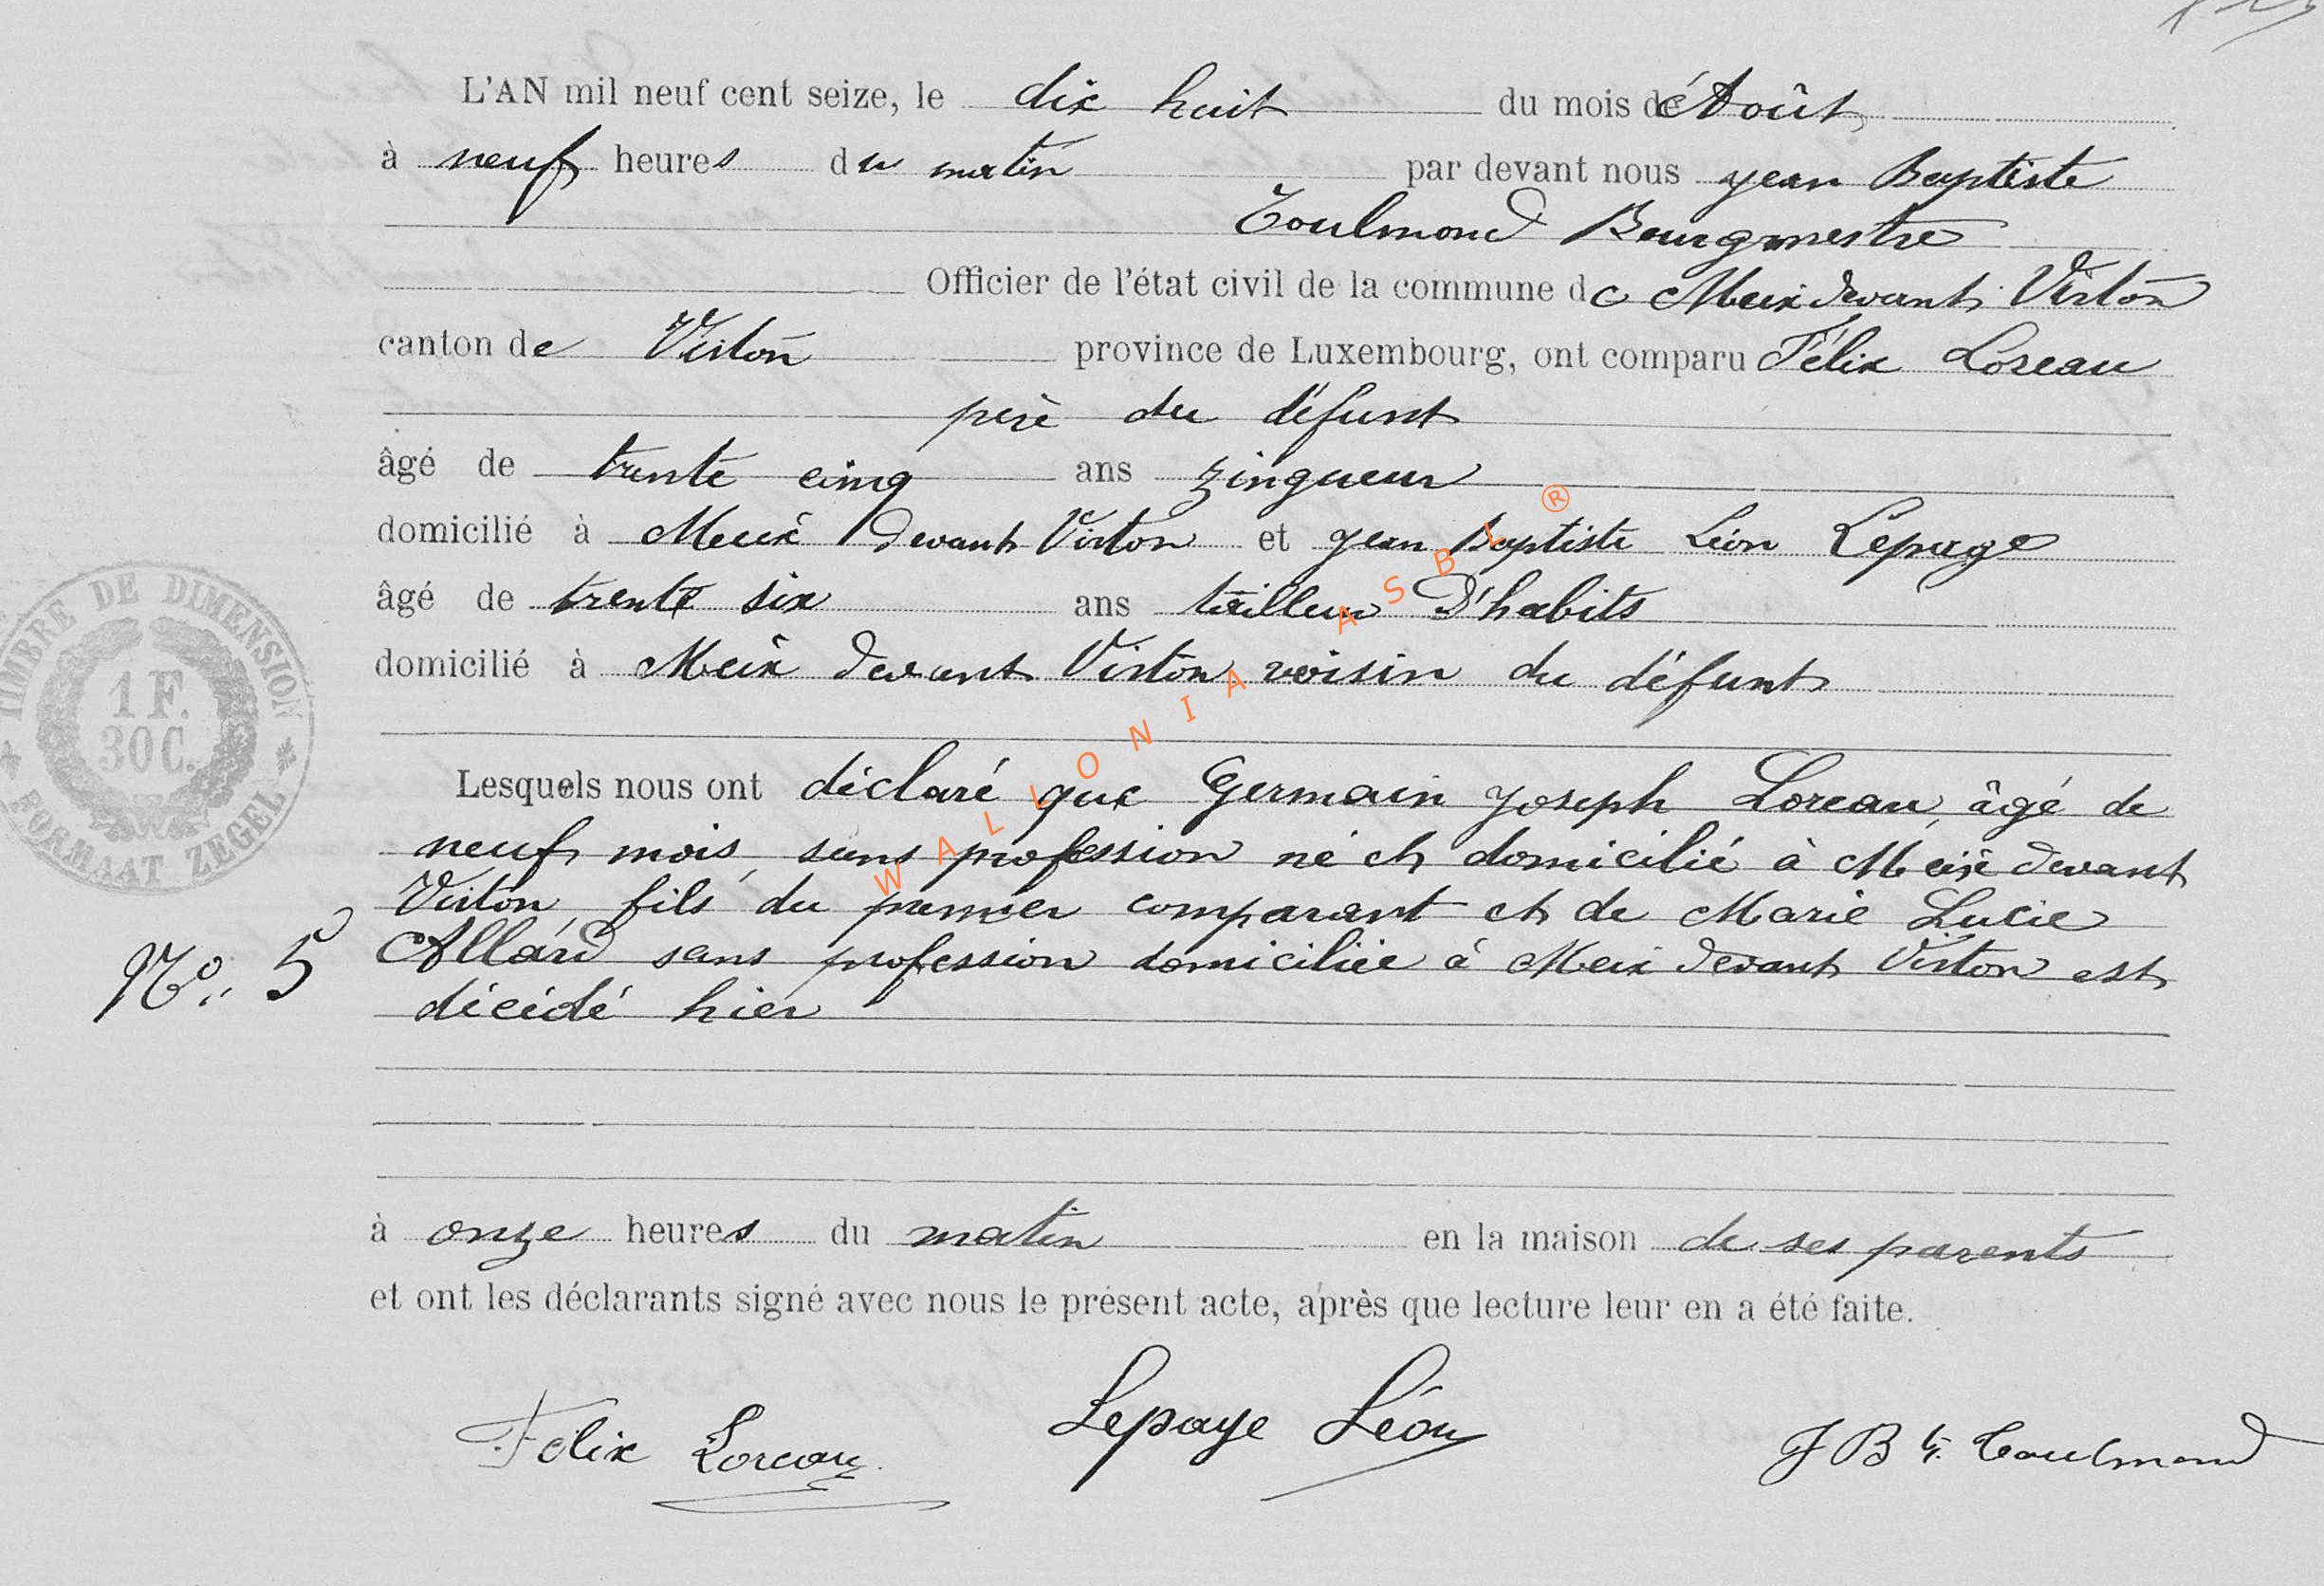 L'AN mil neuf cent seize, le dix huit du mois de Août
à neuf heures du matin par devant nous Jean Baptiste
Toulmond Bourgmestre
Officier de l'état civil de la commune de Meix devant Virton
canton de Virton province de Luxembourg, ont comparu Félix Loreau
père du défunt
âgé de trente cinq ans zingueur
domicilié à Meix devant Virton et Jean Baptiste Léon Lepage
âgé de trente six ans tailleur d'habits
domicilié à Meix devant Virton voisin du défunt
Lesquels nous ont déclaré que Germain Joseph Loreau, âgé de
neuf mois, sans profession né et domicilié à Meix devant
Virton, fils du premier comparant et de Marie Lucie
Allard sans profession domiciliée à Meix devant Virton est
décédé hier
No. 5
à onze heures du matin en la maison de ses parents
et ont les déclarants signé avec nous le présent acte, après que lecture leur en a été faite.
Félix Loreau Lepage Léon J B te Toulmond
TIMBRE DE DIMENSION
1 F.
30 C.
FORMAAT ZEGEL
WALLONIA ASBL ®